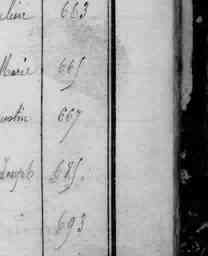 line 663
Marie 665
ustin 667
Joseph 685
693